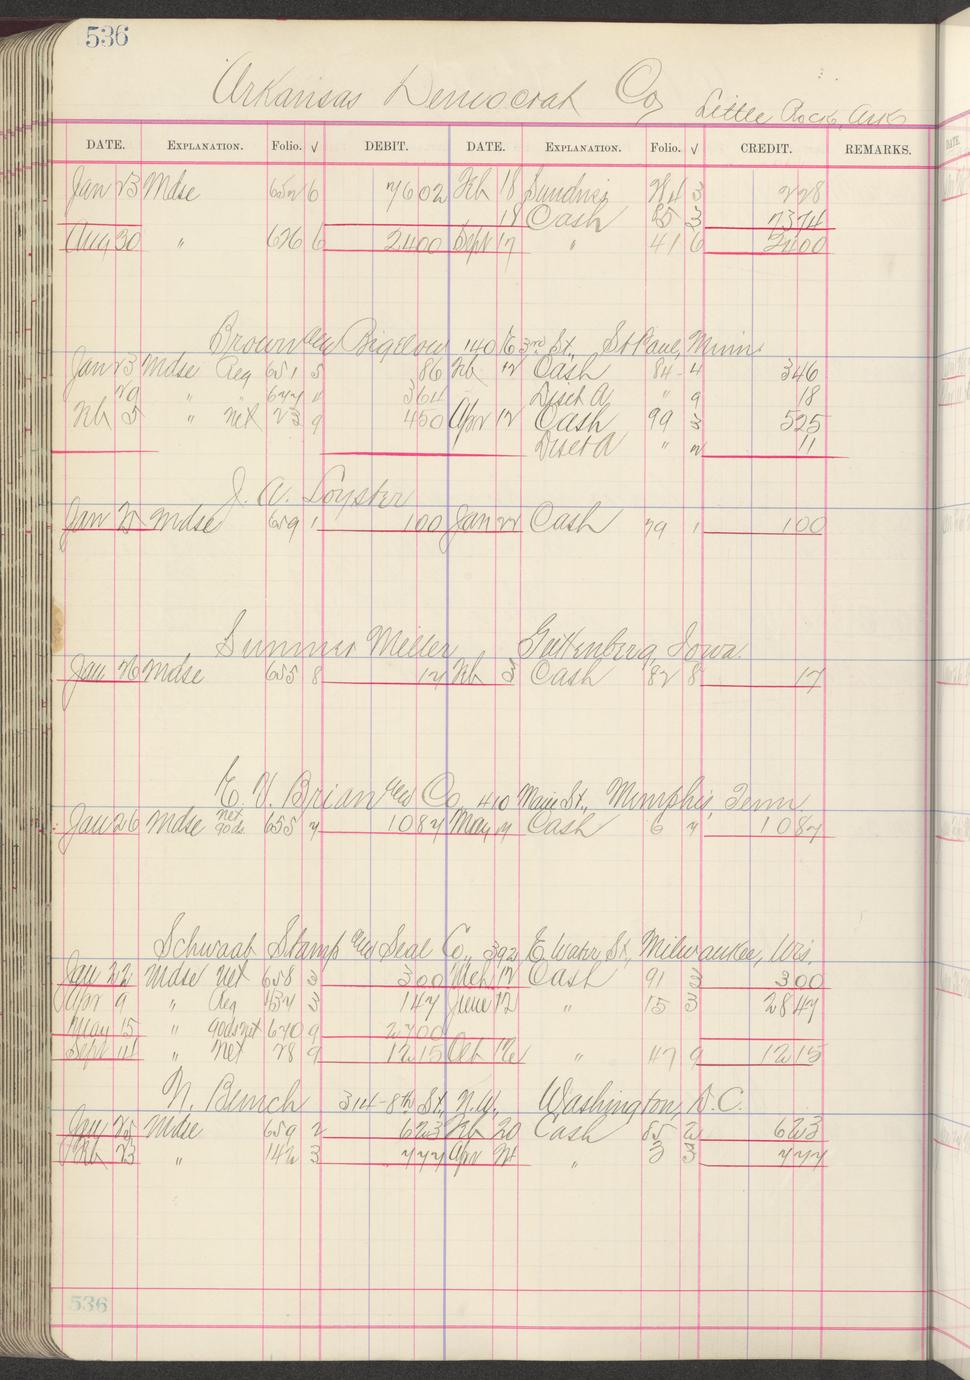 536
Arkansas Democrat Co Little Rock, Ark
DATE. EXPLANATION. Folio. √ DEBIT. DATE. EXPLANATION. Folio. √ CREDIT. REMARKS.
Jan 23 Mdse 652 6 7602 Feb 18 Sundries 3 228
18 Cash 85 3 7374
Aug 30 " 626 6 2400 Sept 17 " 41 6 2400
Brown & Bigelow 140 E 3rd St., St Paul, Minn
Jan 23 Mdse Reg 651 5 86 Feb 12 Cash 84 4 346
29 " " 4 364 Disct A " 9 18
Feb 5 " Net 23 9 450 Apr 12 Cash 99 3 525
Disct A " 2 11
J. A. Loyster
Jan 25 Mdse 659 1 100 Jan 22 Cash 79 1 100
Sumner Miller Guttenberg, Iowa
Jan 26 Mdse 655 8 17 Feb 3 Cash 82 8 17
E. H. Brian & Co. 410 Main St., Memphis, Tenn.
Jan 26 Mdse net gods 655 7 1087 May 7 Cash 6 7 1087
Schwaab Stamp & Seal Co., 392 E Water St, Milwaukee, Wis.
Jan 22 Mdse net 658 3 300 Mch 12 Cash 91 3 300
Apr 9 " Reg 3 147 June 12 " 15 3 2847
May 15 " gods net 670 9 2700
Sept 11 " Net 28 9 1215 Oct " 47 9 1215
N. Bunch 314-8th St., N.W., Washington, D.C.
Jan 25 Mdse 659 2 623 Feb 20 Cash 85 2 623
Feb 23 " 142 3 777 Apr 24 " 3 3 777
536